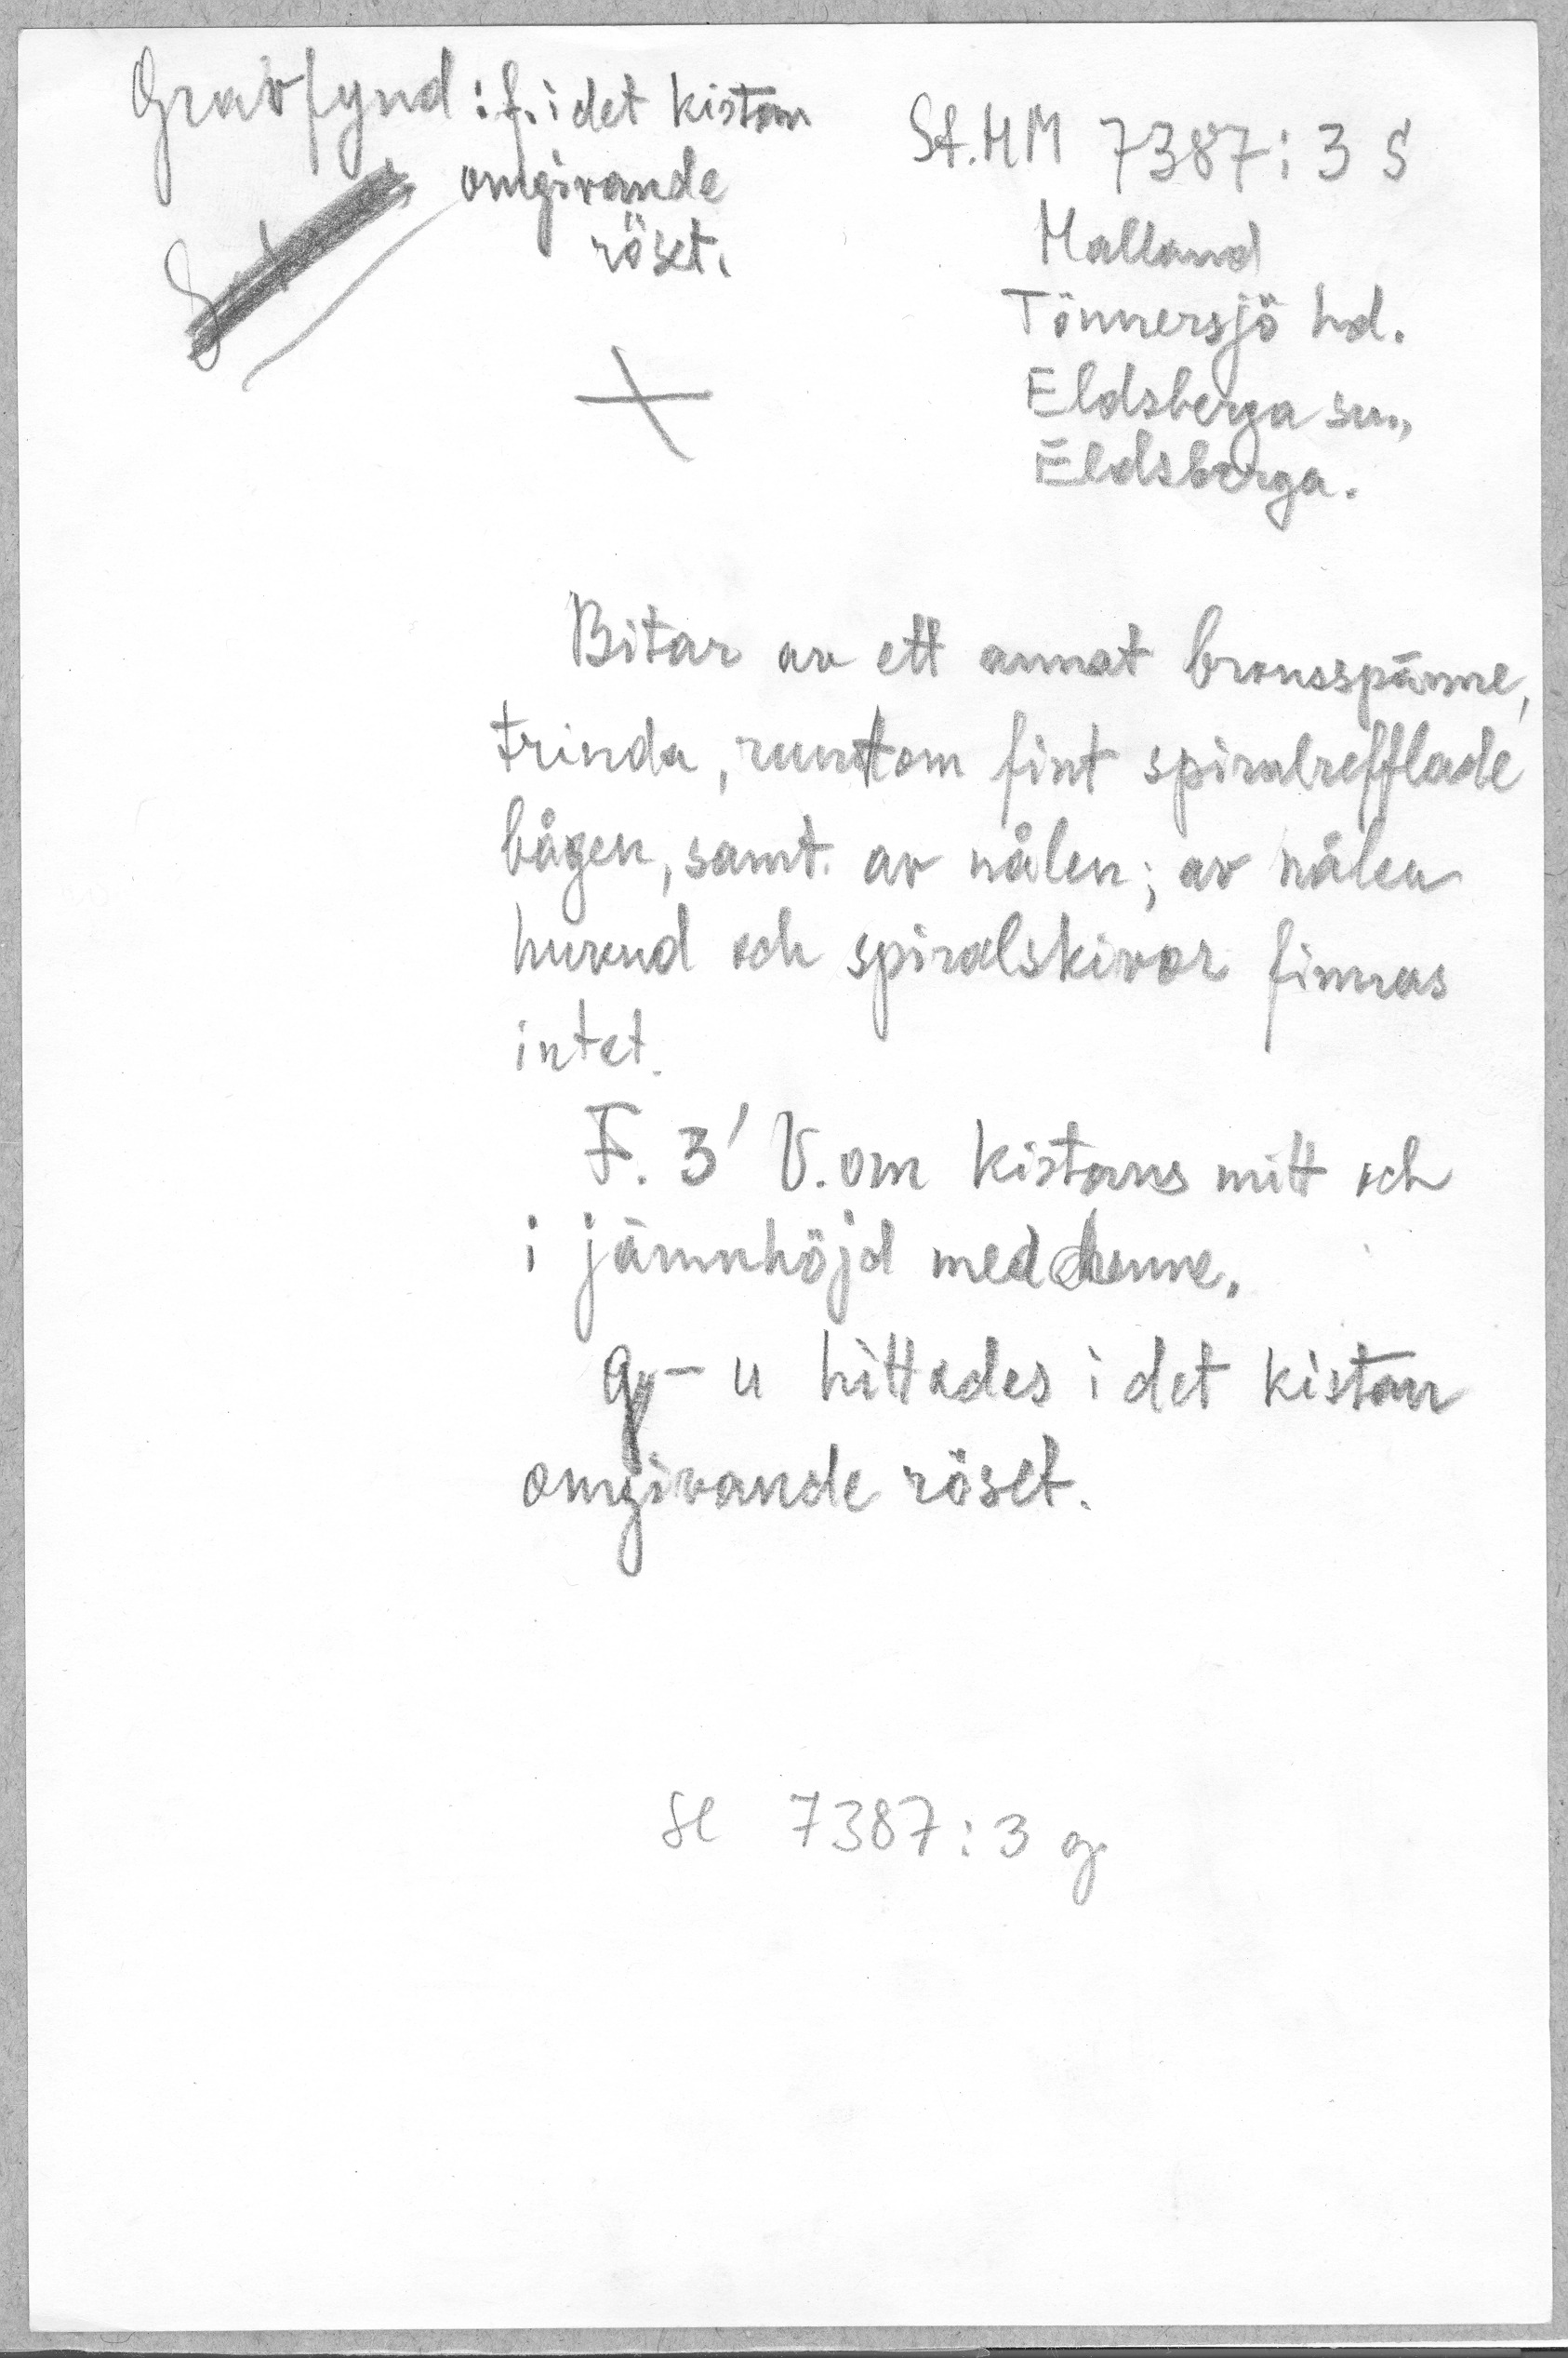 Gravfynd: f. i det kistan
omgivande
röset.
St.HM 7387:3 S
Halland
Tönnersjö hd.
Eldsberga sn.,
Eldsberga.
Bitar av ett annat bronsspänne,
trinda, runtom fint spiralrefflade
bågen, samt av nålen; av nålen
huvud och spiralskivor finnas
intet.
F. 3' V. om kistans mitt och
i jämnhöjd med henne.
g - u hittades i det kistan
omgivande röset.
se 7387:3 g